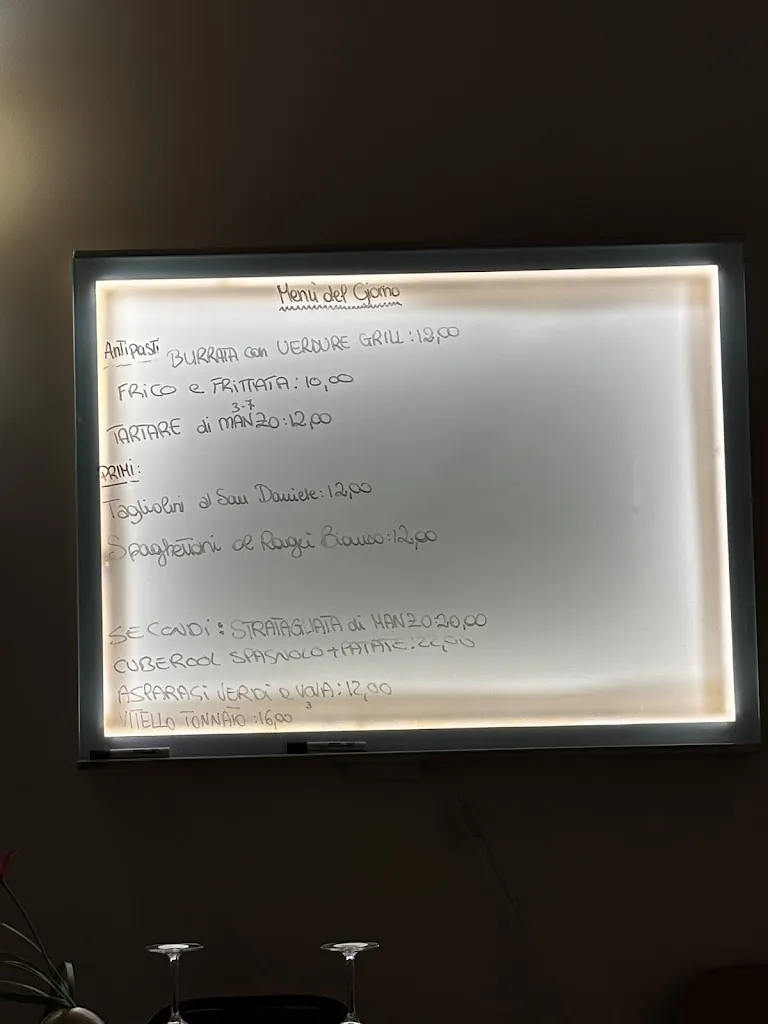 Menù del Giorno
Antipasti BURRATA con VERDURE GRILL: 12,00
FRICO e FRITTATA: 10,00
3-7
TARTARE di MANZO: 12,00
PRIMI:
Tagliolini al San Daniele: 12,00
Spaghettoni al Ragù Bianco: 12,00
SECONDI: STRATAGLIATA di MANZO: 20,00
CUBEROOL SPAGNOLO + PATATE: 22,00
ASPARAGI VERDI e UOVA: 12,00
3
VITELLO TONNATO: 16,00